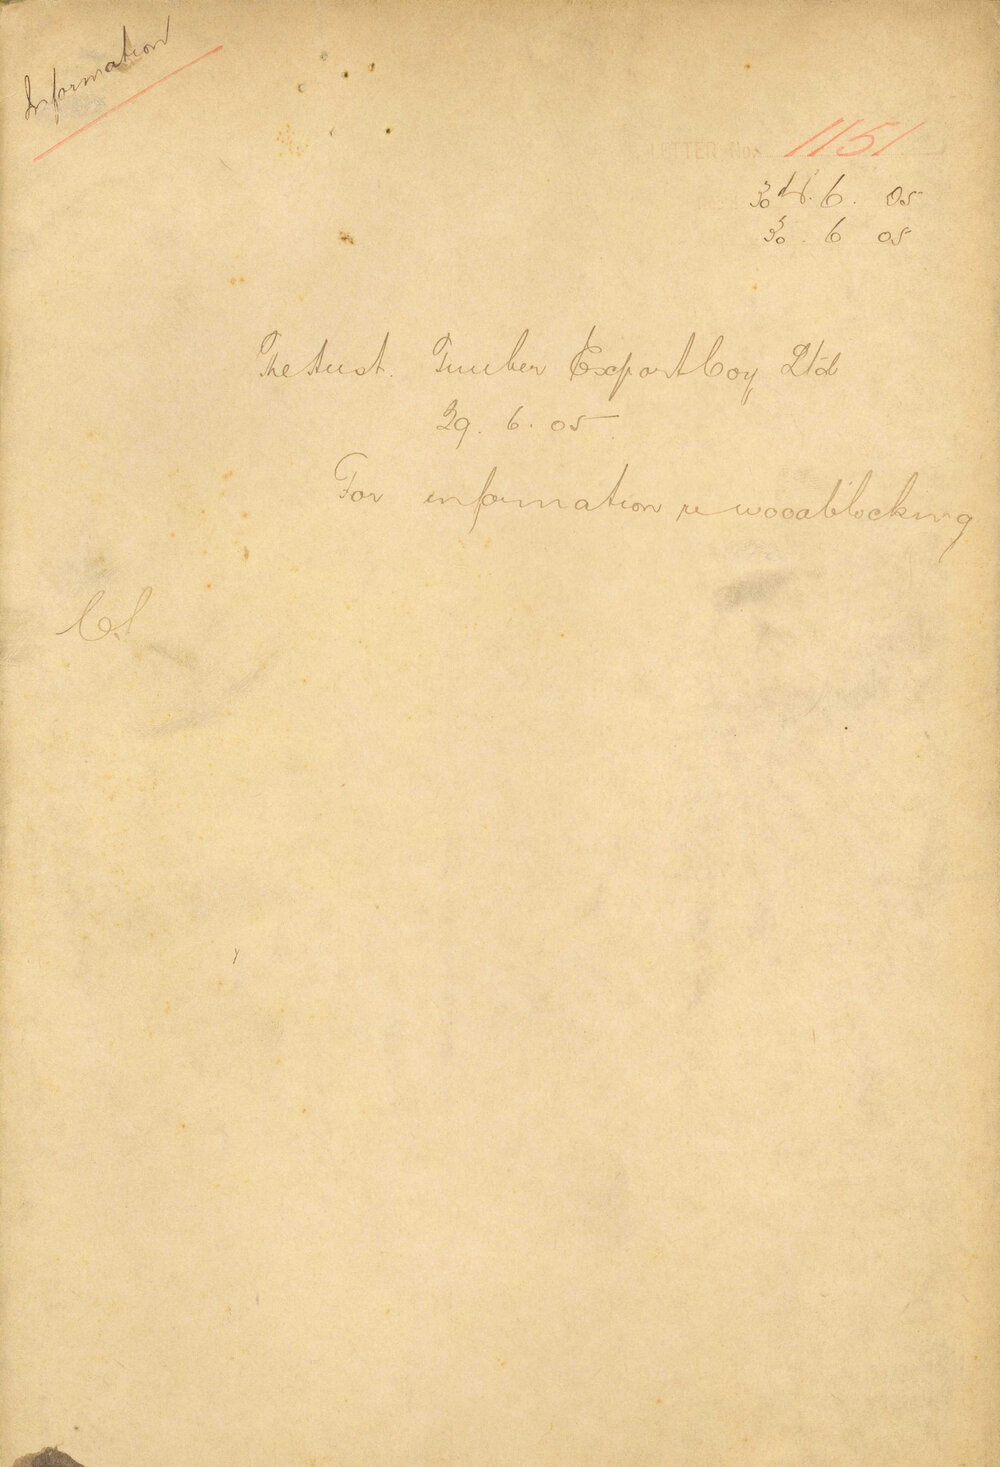 Information
LETTER No. 1151
30. 6. 05
30. 6 05
The Aust. Timber Export Coy Ltd
29. 6. 05
For information re woodblocking